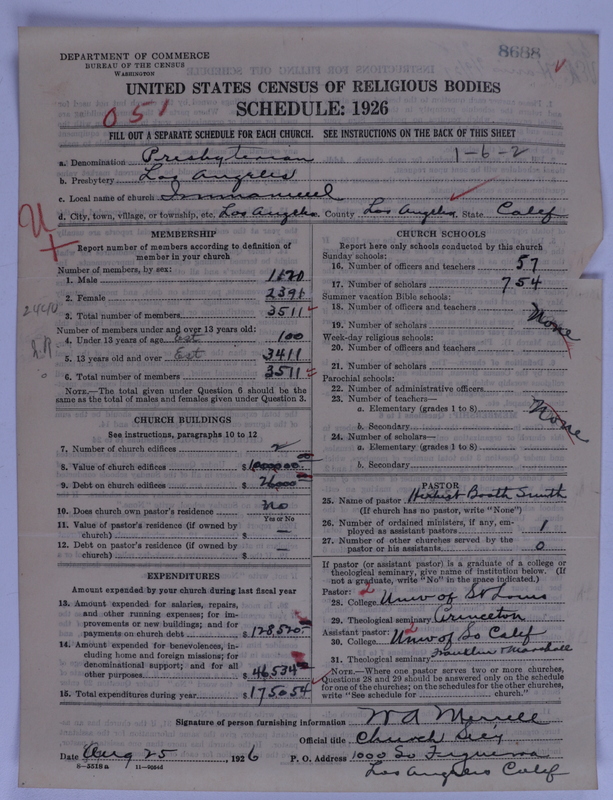 8688
DEPARTMENT OF COMMERCE
BUREAU OF THE CENSUS
WASHINGTON
UNITED STATES CENSUS OF RELIGIOUS BODIES
SCHEDULE: 1926
051
FILL OUT A SEPARATE SCHEDULE FOR EACH CHURCH. SEE INSTRUCTIONS ON THE BACK OF THIS SHEET
a. Denomination Presbyterian 1-6-2
b. Presbytery Los Angeles
c. Local name of church Immanuel
d. City, town, village, or township, etc. Los Angeles County Los Angeles State Calif
U
MEMBERSHIP
Report number of members according to definition of
member in your church
Number of members, by sex:
1. Male 1120
2. Female 2391
3. Total number of members 3511
Number of members under and over 13 years old:
4. Under 13 years of age Est 100
5. 13 years old and over Est 3411
6. Total number of members 3511
NOTE.—The total given under Question 6 should be the
same as the total of males and females given under Question 3.
CHURCH BUILDINGS
See instructions, paragraphs 10 to 12
7. Number of church edifices 2
8. Value of church edifices $1000000.00
9. Debt on church edifices $76000
10. Does church own pastor's residence No
Yes or No
11. Value of pastor's residence (if owned by
church) $ —
12. Debt on pastor's residence (if owned by
church) $ —
EXPENDITURES
Amount expended by church during last fiscal year
13. Amount expended for salaries, repairs,
and other running expenses; for im-
provements or new buildings; and for
payments on church debt $128,520.
14. Amount expended for benevolences, in-
cluding home and foreign missions; for
denominational support; and for all
other purposes $46,534
15. Total expenditures during year $175054
CHURCH SCHOOLS
Report here only schools conducted by this church
Sunday schools:
16. Number of officers and teachers 57
17. Number of scholars 754
Summer vacation Bible schools:
18. Number of officers and teachers None
19. Number of scholars
Week-day religious schools:
20. Number of officers and teachers
21. Number of scholars
Parochial schools:
22. Number of administrative officers
23. Number of teachers— None
a. Elementary (grades 1 to 8)
b. Secondary
24. Number of scholars—
a. Elementary (grades 1 to 8)
b. Secondary
PASTOR
25. Name of pastor Herbert Booth Smith
(If church has no pastor, write "None")
26. Number of ordained ministers, if any, em-
ployed as assistant pastors 1
27. Number of other churches served by the
pastor or his assistants 0
If pastor (or assistant pastor) is a graduate of a college or
theological seminary, give name of institution below. (If
not a graduate, write "No" in the space indicated.)
Pastor: 2
28. College Univ of St Louis
29. Theological seminary Princeton
Assistant pastor: 2
30. College Univ of So Calif
31. Theological seminary Franklin & Marshall
NOTE.—Where one pastor serves two or more churches,
Questions 28 and 29 should be answered only on the schedule
for one of the churches; on the schedules for the other churches,
write "See schedule for church."
Signature of person furnishing information W A Merrill
Official title Church Secy
Date Aug 25, 1926 P. O. Address 1000 So Figueroa
8—5518a 11—9064d Los Angeles Calif